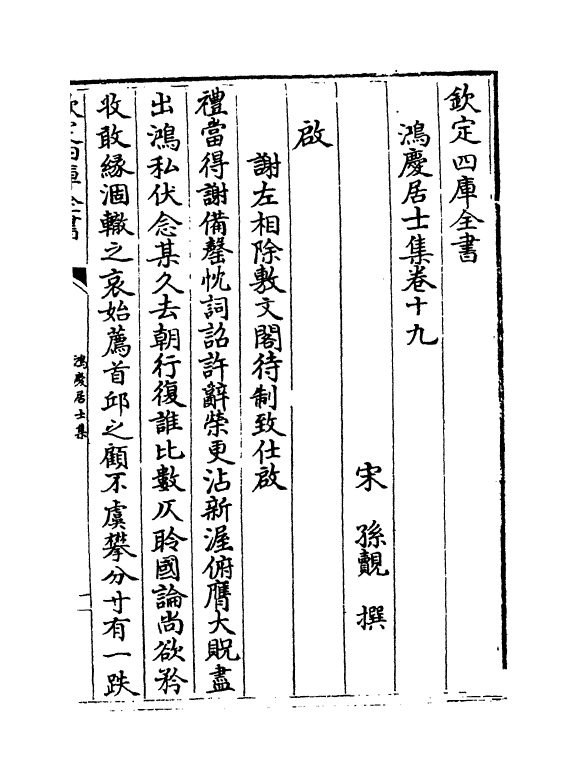 欽定四庫全書
鴻慶居士集卷十九
宋 孫覿 撰
啟
謝左相除敷文閣待制致仕啟
禮當得謝備罄忱詞詔許辭榮更沾新渥俯膺大貺盡
出鴻私伏念某久去朝行復誰比數仄聆國論尚欲矜
收敢緣涸轍之哀始薦首邱之顧不虞攀分寸有一跌
欽定四庫全書
鴻慶居士集
一